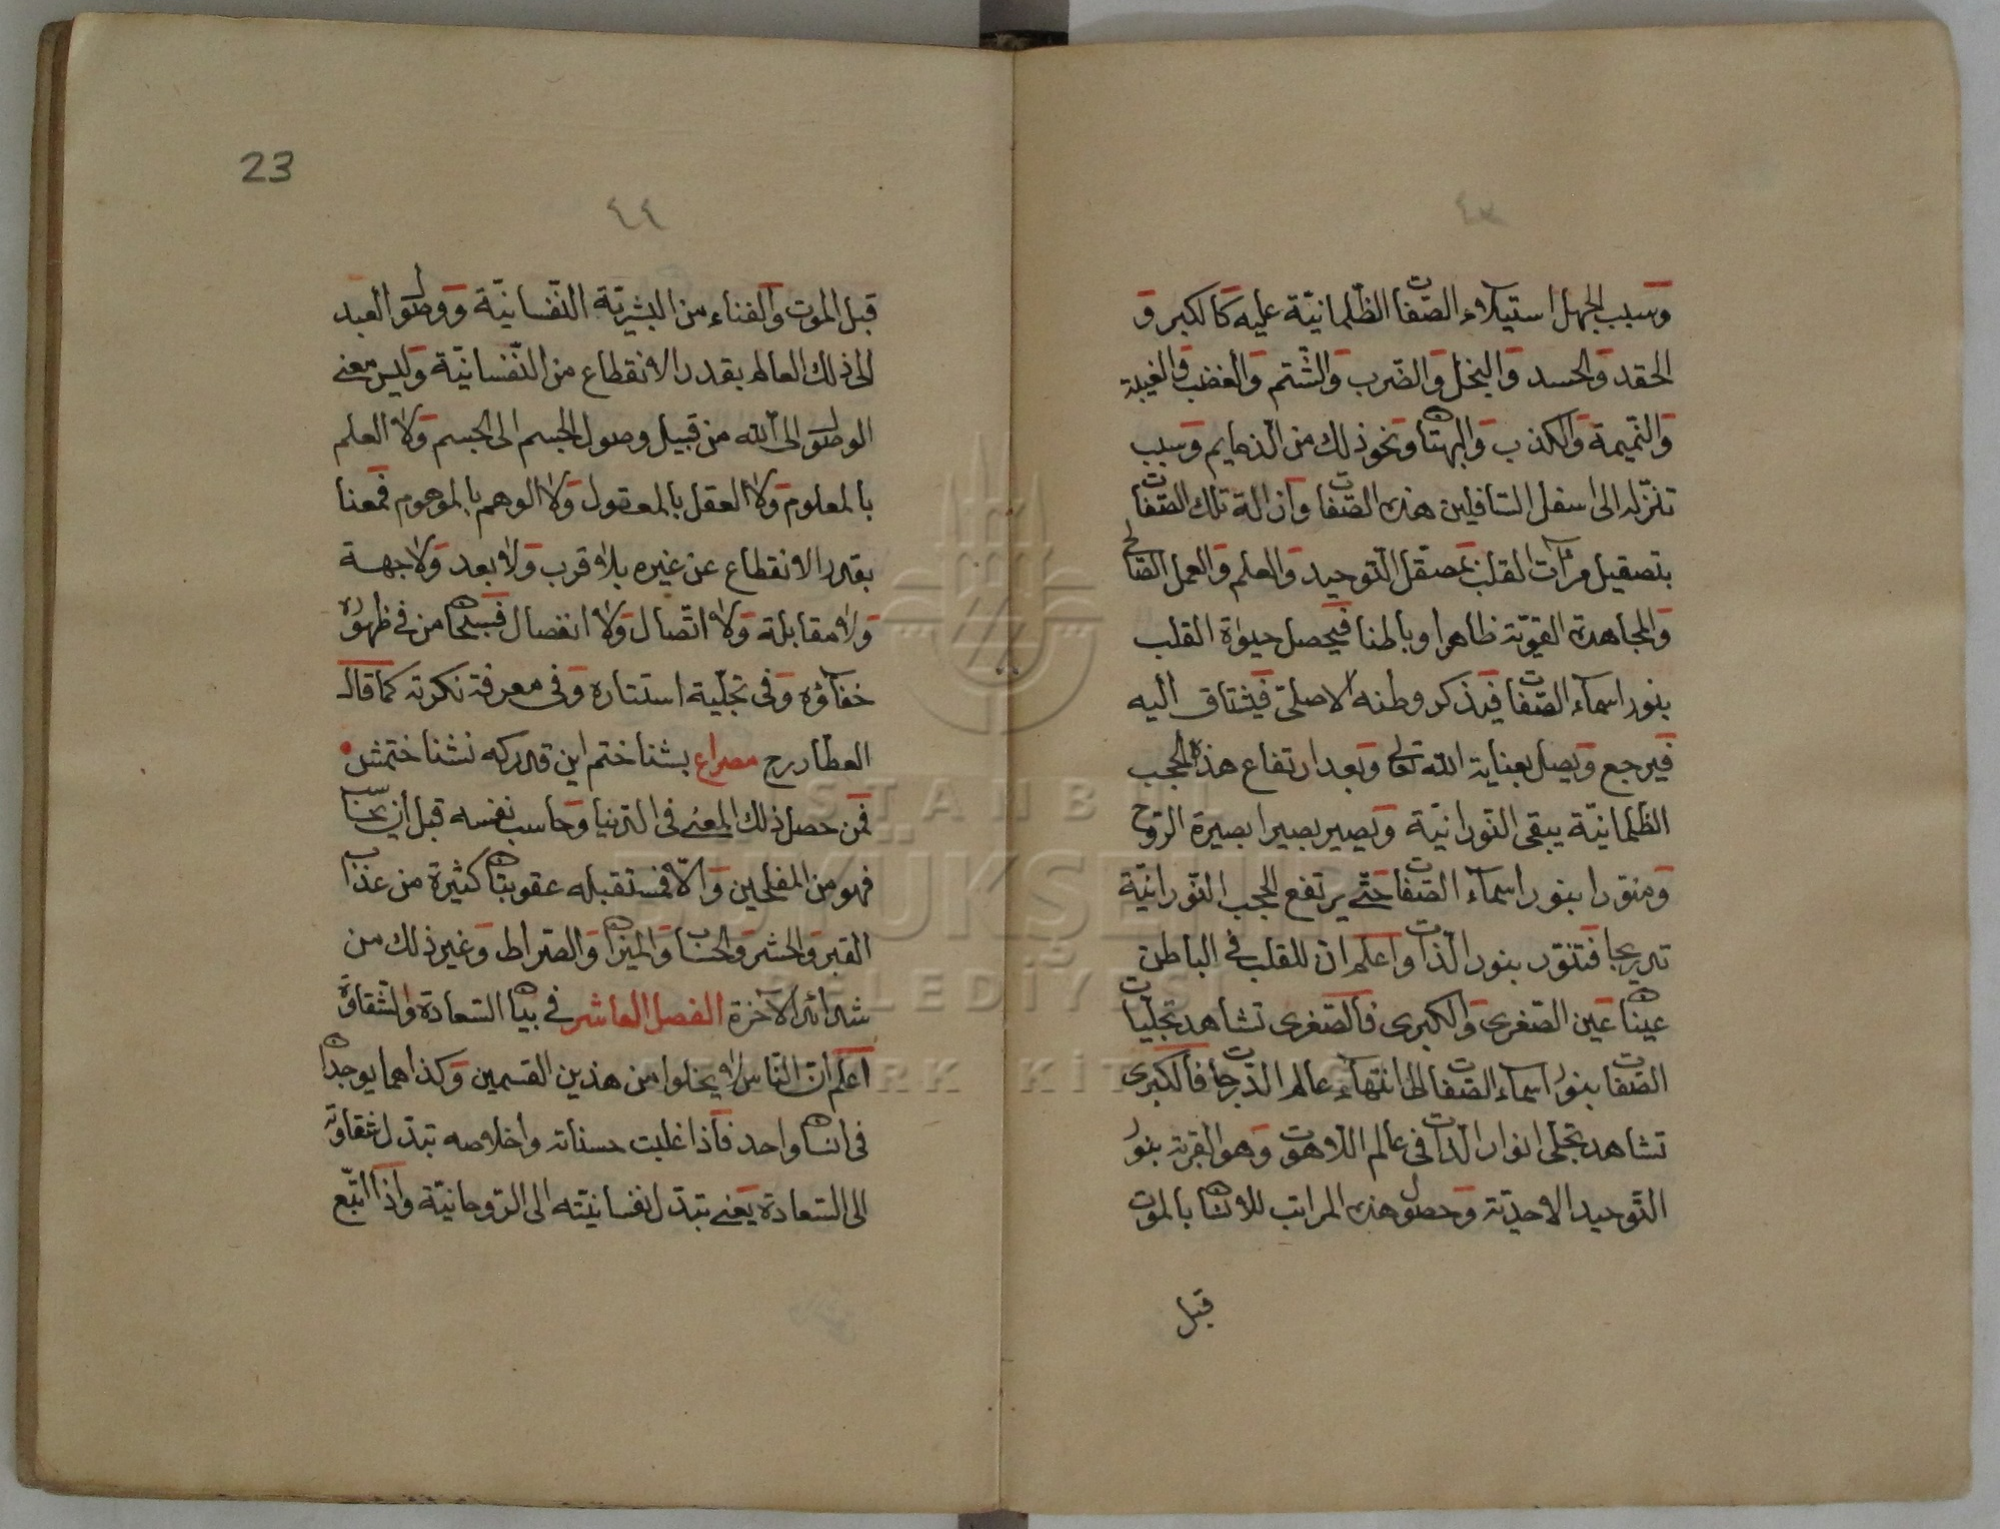 ٤٣
وسبب الجهل استيلاء الصّفات الظّلمانيّة عليه كالكبر و
الحقد والحسد والبخل والضّرب والشّتم والغضب والغيبة
والنّميمة والكذب والبهتان ونحو ذلك من الذمايم وسبب
تنزّله الى اسفل السّافلين هذه الصّفات وازالة تلك الصّفات
بتصقيل مرآت القلب بمصقل التّوحيد والعلم والعمل الصّالح
والمجاهدة القويّة ظاهرا وباطنا فيحصل حيوة القلب
بنور اسماء الصّفات فيذكر وطنه الاصلى فيشتاق اليه
فيرجع ويصل بعناية الله تعالى وبعد ارتفاع هذه الحجب
الظّلمانيّة يبقى النّورانيّة ويصير بصيرا ببصيرة الرّوح
ومنوّرا بنور اسماء الصّفات حتّى يرتفع الحجب النّورانيّة
تدريجا فتنوّر بنور الذّات واعلم انّ للقلب فى الباطن
عينان عين الصّغرى والكبرى فالصّغرى تشاهد تجلّيات
الصّفات بنور اسماء الصّفات الى انتهاء عالم الدّرجات فالكبرى
تشاهد تجلّى انوار الذّات فى عالم اللّاهوت وهو القربة بنور
التّوحيد الاحديّة وحصول هذه المراتب للانسان بالموت
قبل
23
٤٤
قبل الموت والفناء من البشريّة النّفسانيّة ووصول العبد
الى ذلك العالم بقدر الانقطاع من النّفسانيّة وليس معنى
الوصول الى الله من قبيل وصول الجسم الى الجسم ولا العلم
بالمعلوم ولا العقل بالمعقول ولا الوهم بالموهوم فمعنا
بقدر الانقطاع عن غيره بلا قرب ولا بعد ولا جهة
ولا مقابلة ولا اتّصال ولا انفصال فسبحان من فى ظهوره
خفاؤه وفى تجلّيه استتاره وفى معرفته نكرته كما قال
العطار رح مصراع بشناختم اين قدر كه نشناختمش
فمن حصل ذلك المعنى فى الدّنيا وحاسب نفسه قبل ان يحاسب
فهو من المفلحين والّا فستقبله عقوبتان كثيرة من عذاب
القبر والحشر والحساب والميزان والصّراط وغير ذلك من
شدائد الآخرة الفصل العاشر فى بيان السّعادة والشّقاوة
اعلم انّ النّاس لا يخلوا من هذين القسمين وكذا هما يوجدان
فى انسان واحد فاذا غلبت حسناته واخلاصه تبدّل شقاوته
الى السّعادة يعنى تبدّل نفسانيّته الى الرّوحانيّة واذا اتّبع